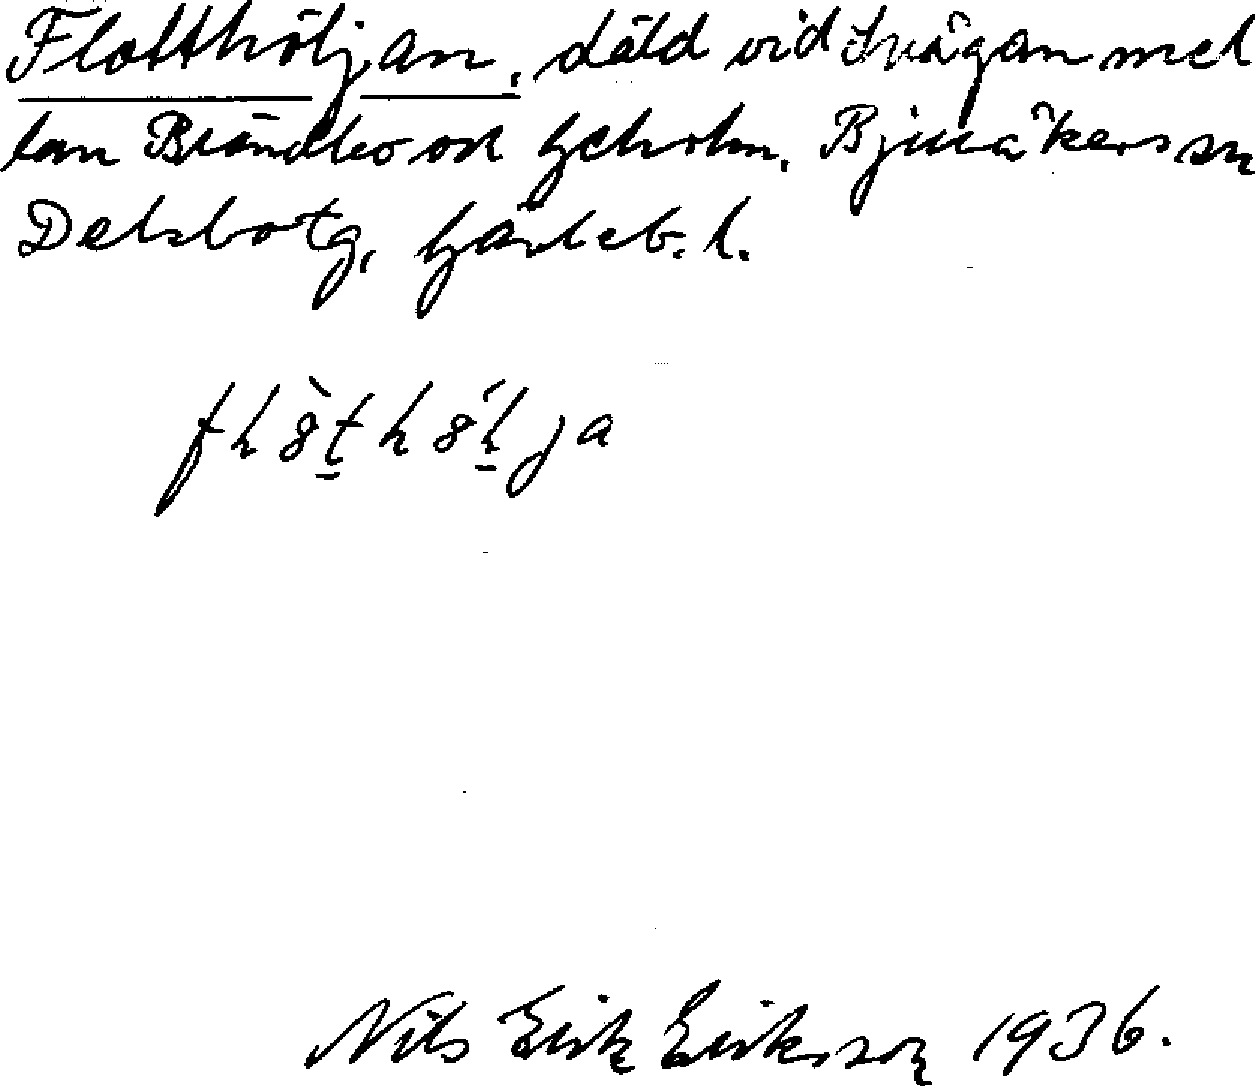 Flotthöljan, däld vid Svågan mel
lan Brändbo och Gcholm, Bjuråkers sn
Delsbo tg, Gävleb. l.
Nils Erik Eriksson 1936.